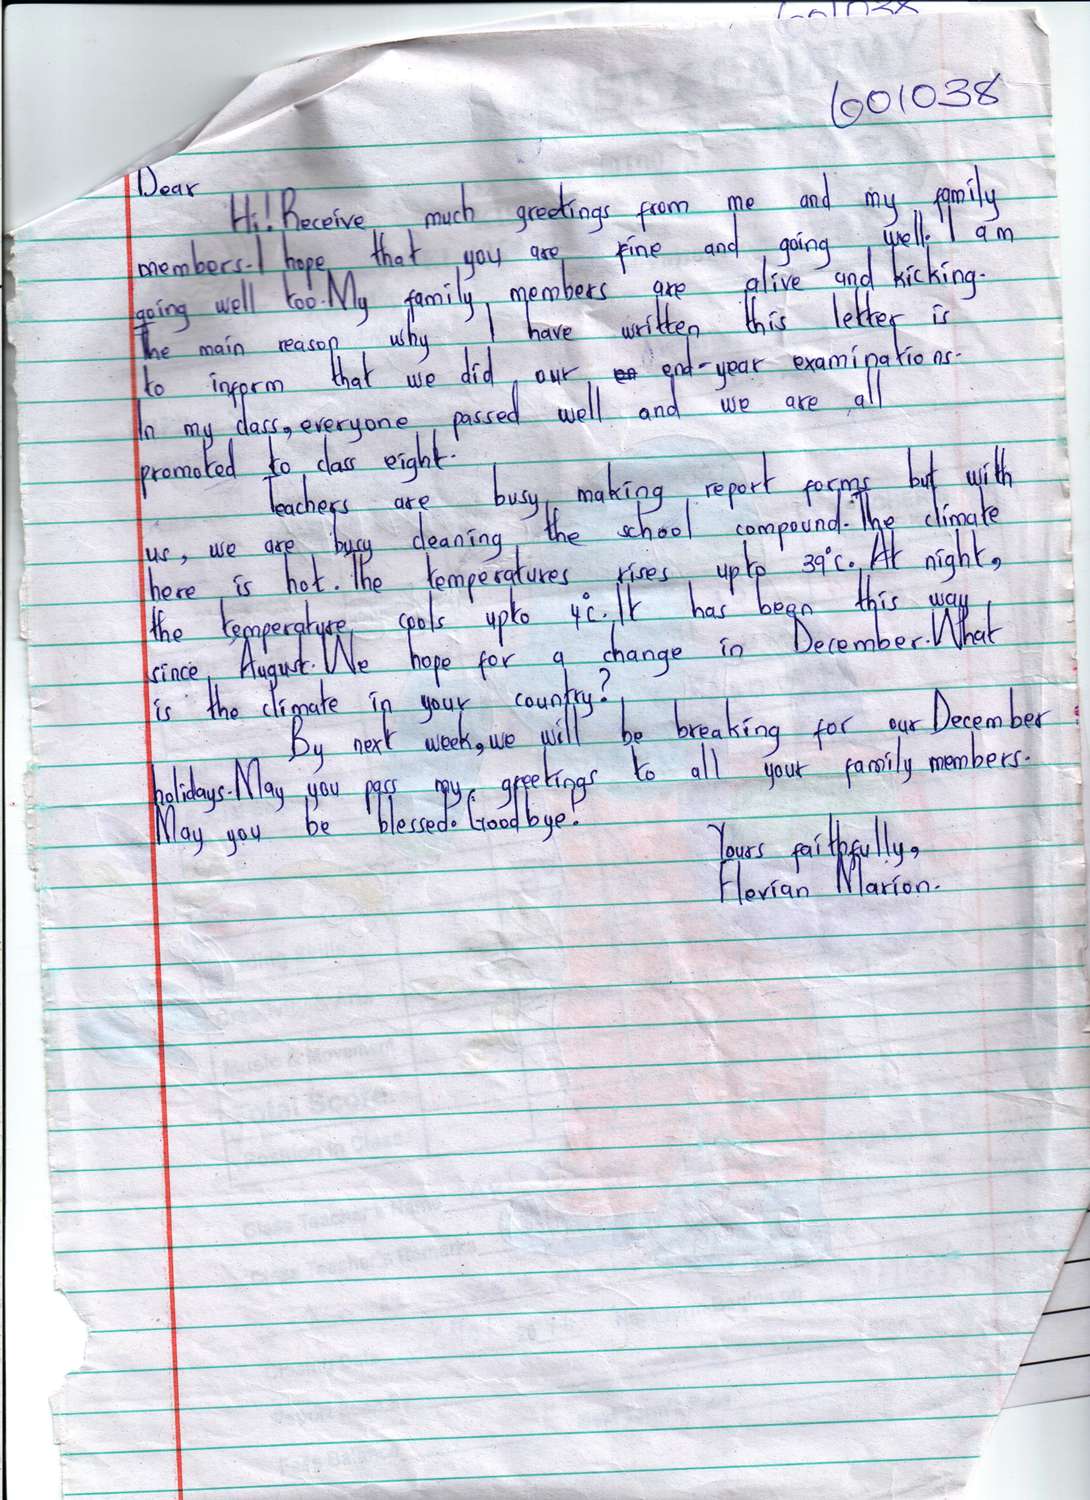 601038
Dear
Hi! Receive much greetings from me and my family
members. I hope that you are fine and going well. I am
going well too. My family members are alive and kicking.
The main reason why I have written this letter is
to inform that we did our end-year examinations.
In my class, everyone passed well and we are all
promoted to class eight.
Teachers are busy making report forms but with
us, we are busy cleaning the school compound. The climate
here is hot. The temperatures rises upto 39°c. At night,
the temperature cools upto 4°c. It has been this way
since August. We hope for a change in December. What
is the climate in your country?
By next week, we will be breaking for our December
holidays. May you pass my greetings to all your family members.
May you be blessed. Goodbye!
Yours faithfully,
Florian Marion.
Music & Movement
Total Score
Position in Class
Class Teacher's Name
Class Teacher's Remarks